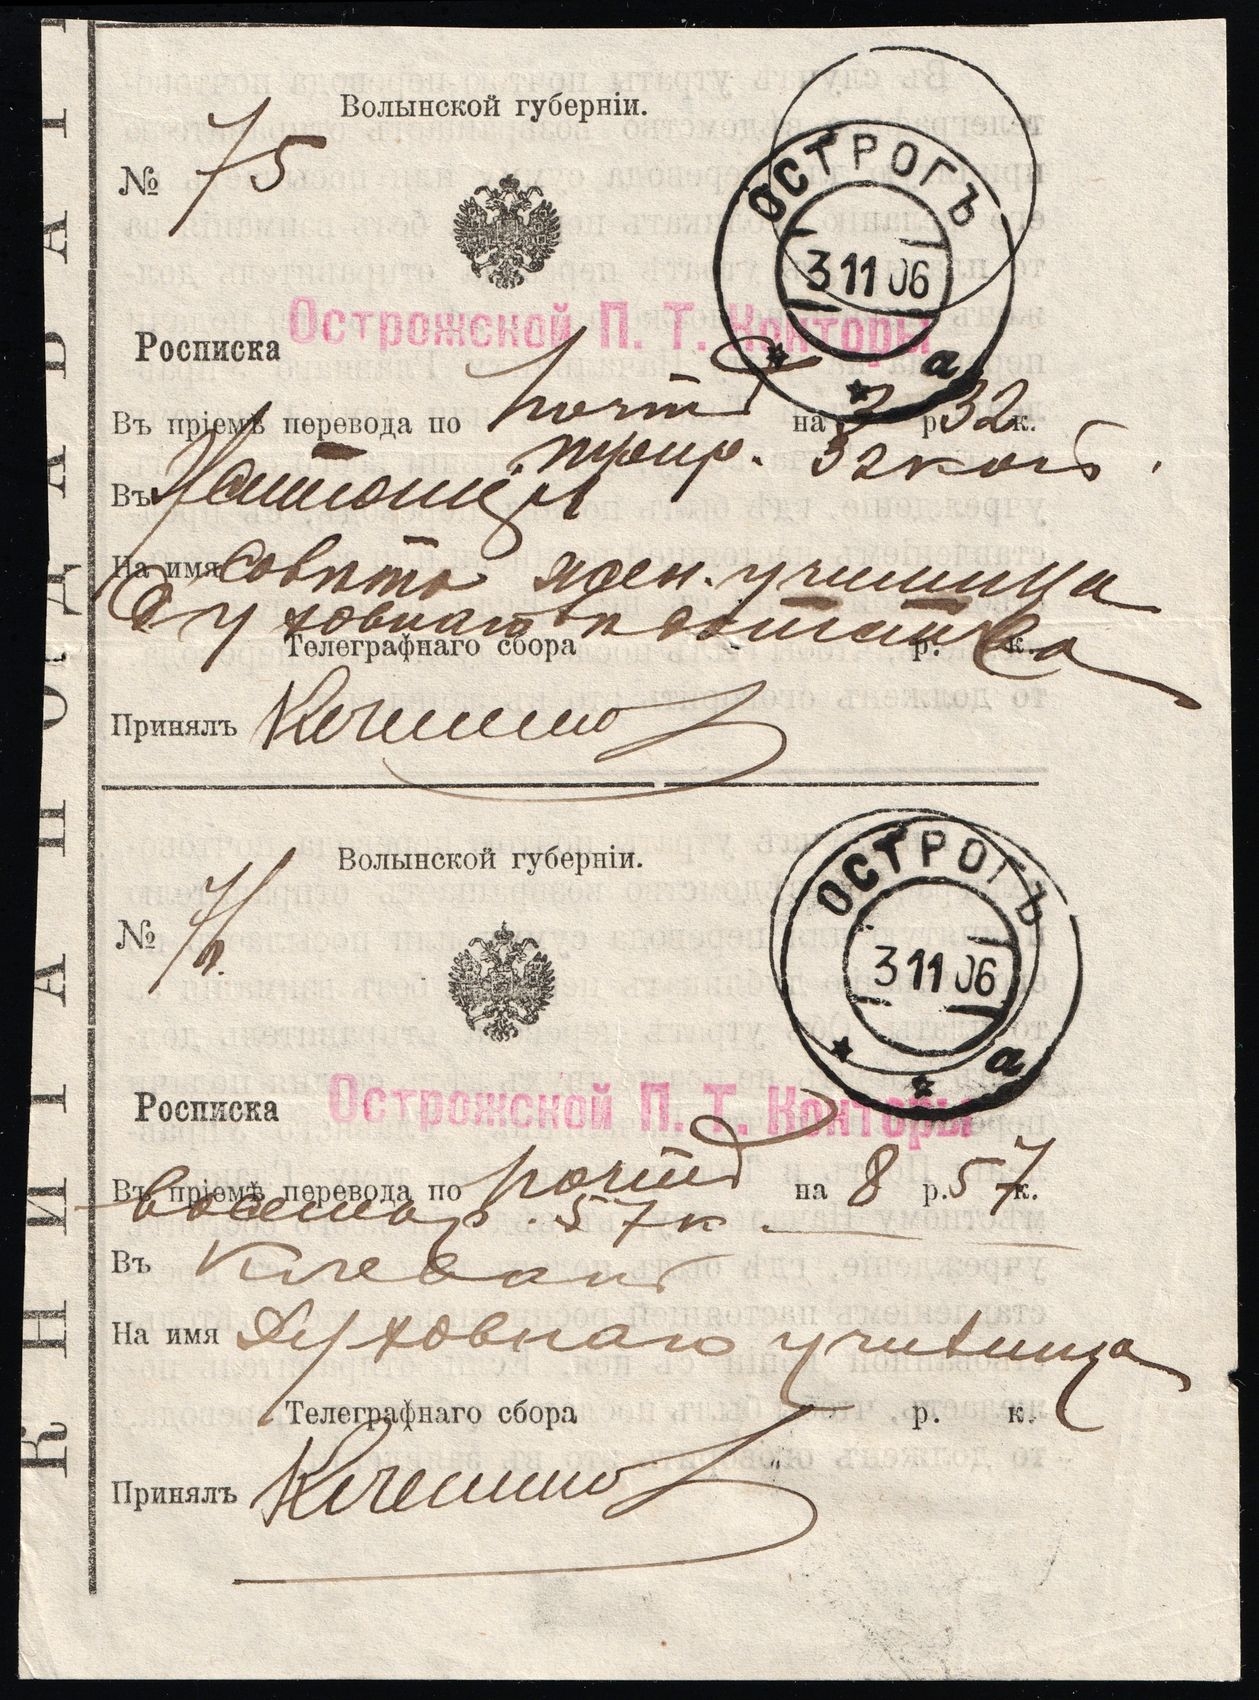 Волынской губерніи.
№ 75
ОСТРОГЪ
3 11 06
а
Острожской П. Т. Конторы
Росписка
Въ пріемѣ перевода по почтѣ на р. 32 к.
32 коп.
Въ
На имя Совѣта жен. училища
Духовнаго вѣдомства
Телеграфнаго сбора - р. к.
Принялъ
Волынской губерніи.
№ 76
ОСТРОГЪ
3 11 06
а
Острожской П. Т. Конторы
Росписка
Въ пріемѣ перевода по почтѣ на 8 р. 57 к.
восемь р. 57 к.
Въ Клевань
На имя Духовнаго училища
Телеграфнаго сбора — р. к.
Принялъ